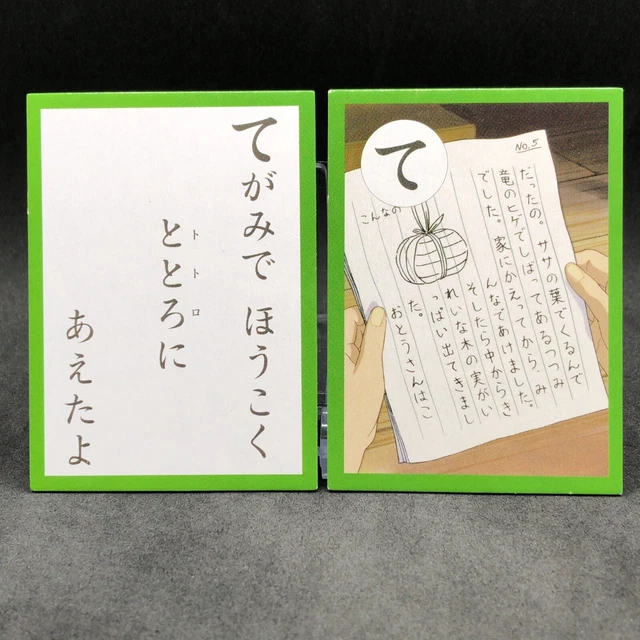 てがみで ほうこく
ととろに
トトロ
あえたよ
て
No.5
だったの。ササの葉でくるんで
竜のヒゲでしばってあるつつみ
でした。家にかえってから、み
んなであけました。
そしたら中からき
れいな木の実がい
っぱい出てきまし
た。
おとうさんはこ
こんなの